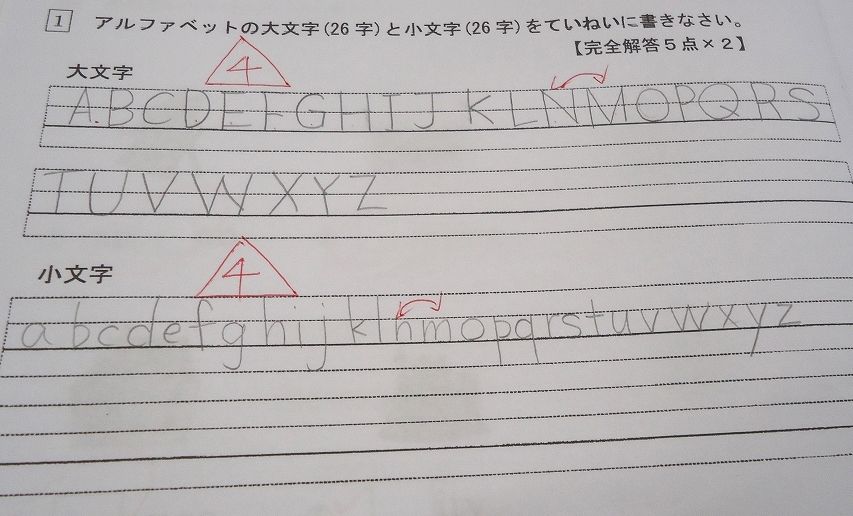 1 アルファベットの大文字(26字)と小文字(26字)をていねいに書きなさい。
【完全解答5点×2】
大文字
4
A B C D E F G H I J K L N M O P Q R S
T U V W X Y Z
小文字
4
a b c d e f g h i j k l n m o p q r s t u v w x y z